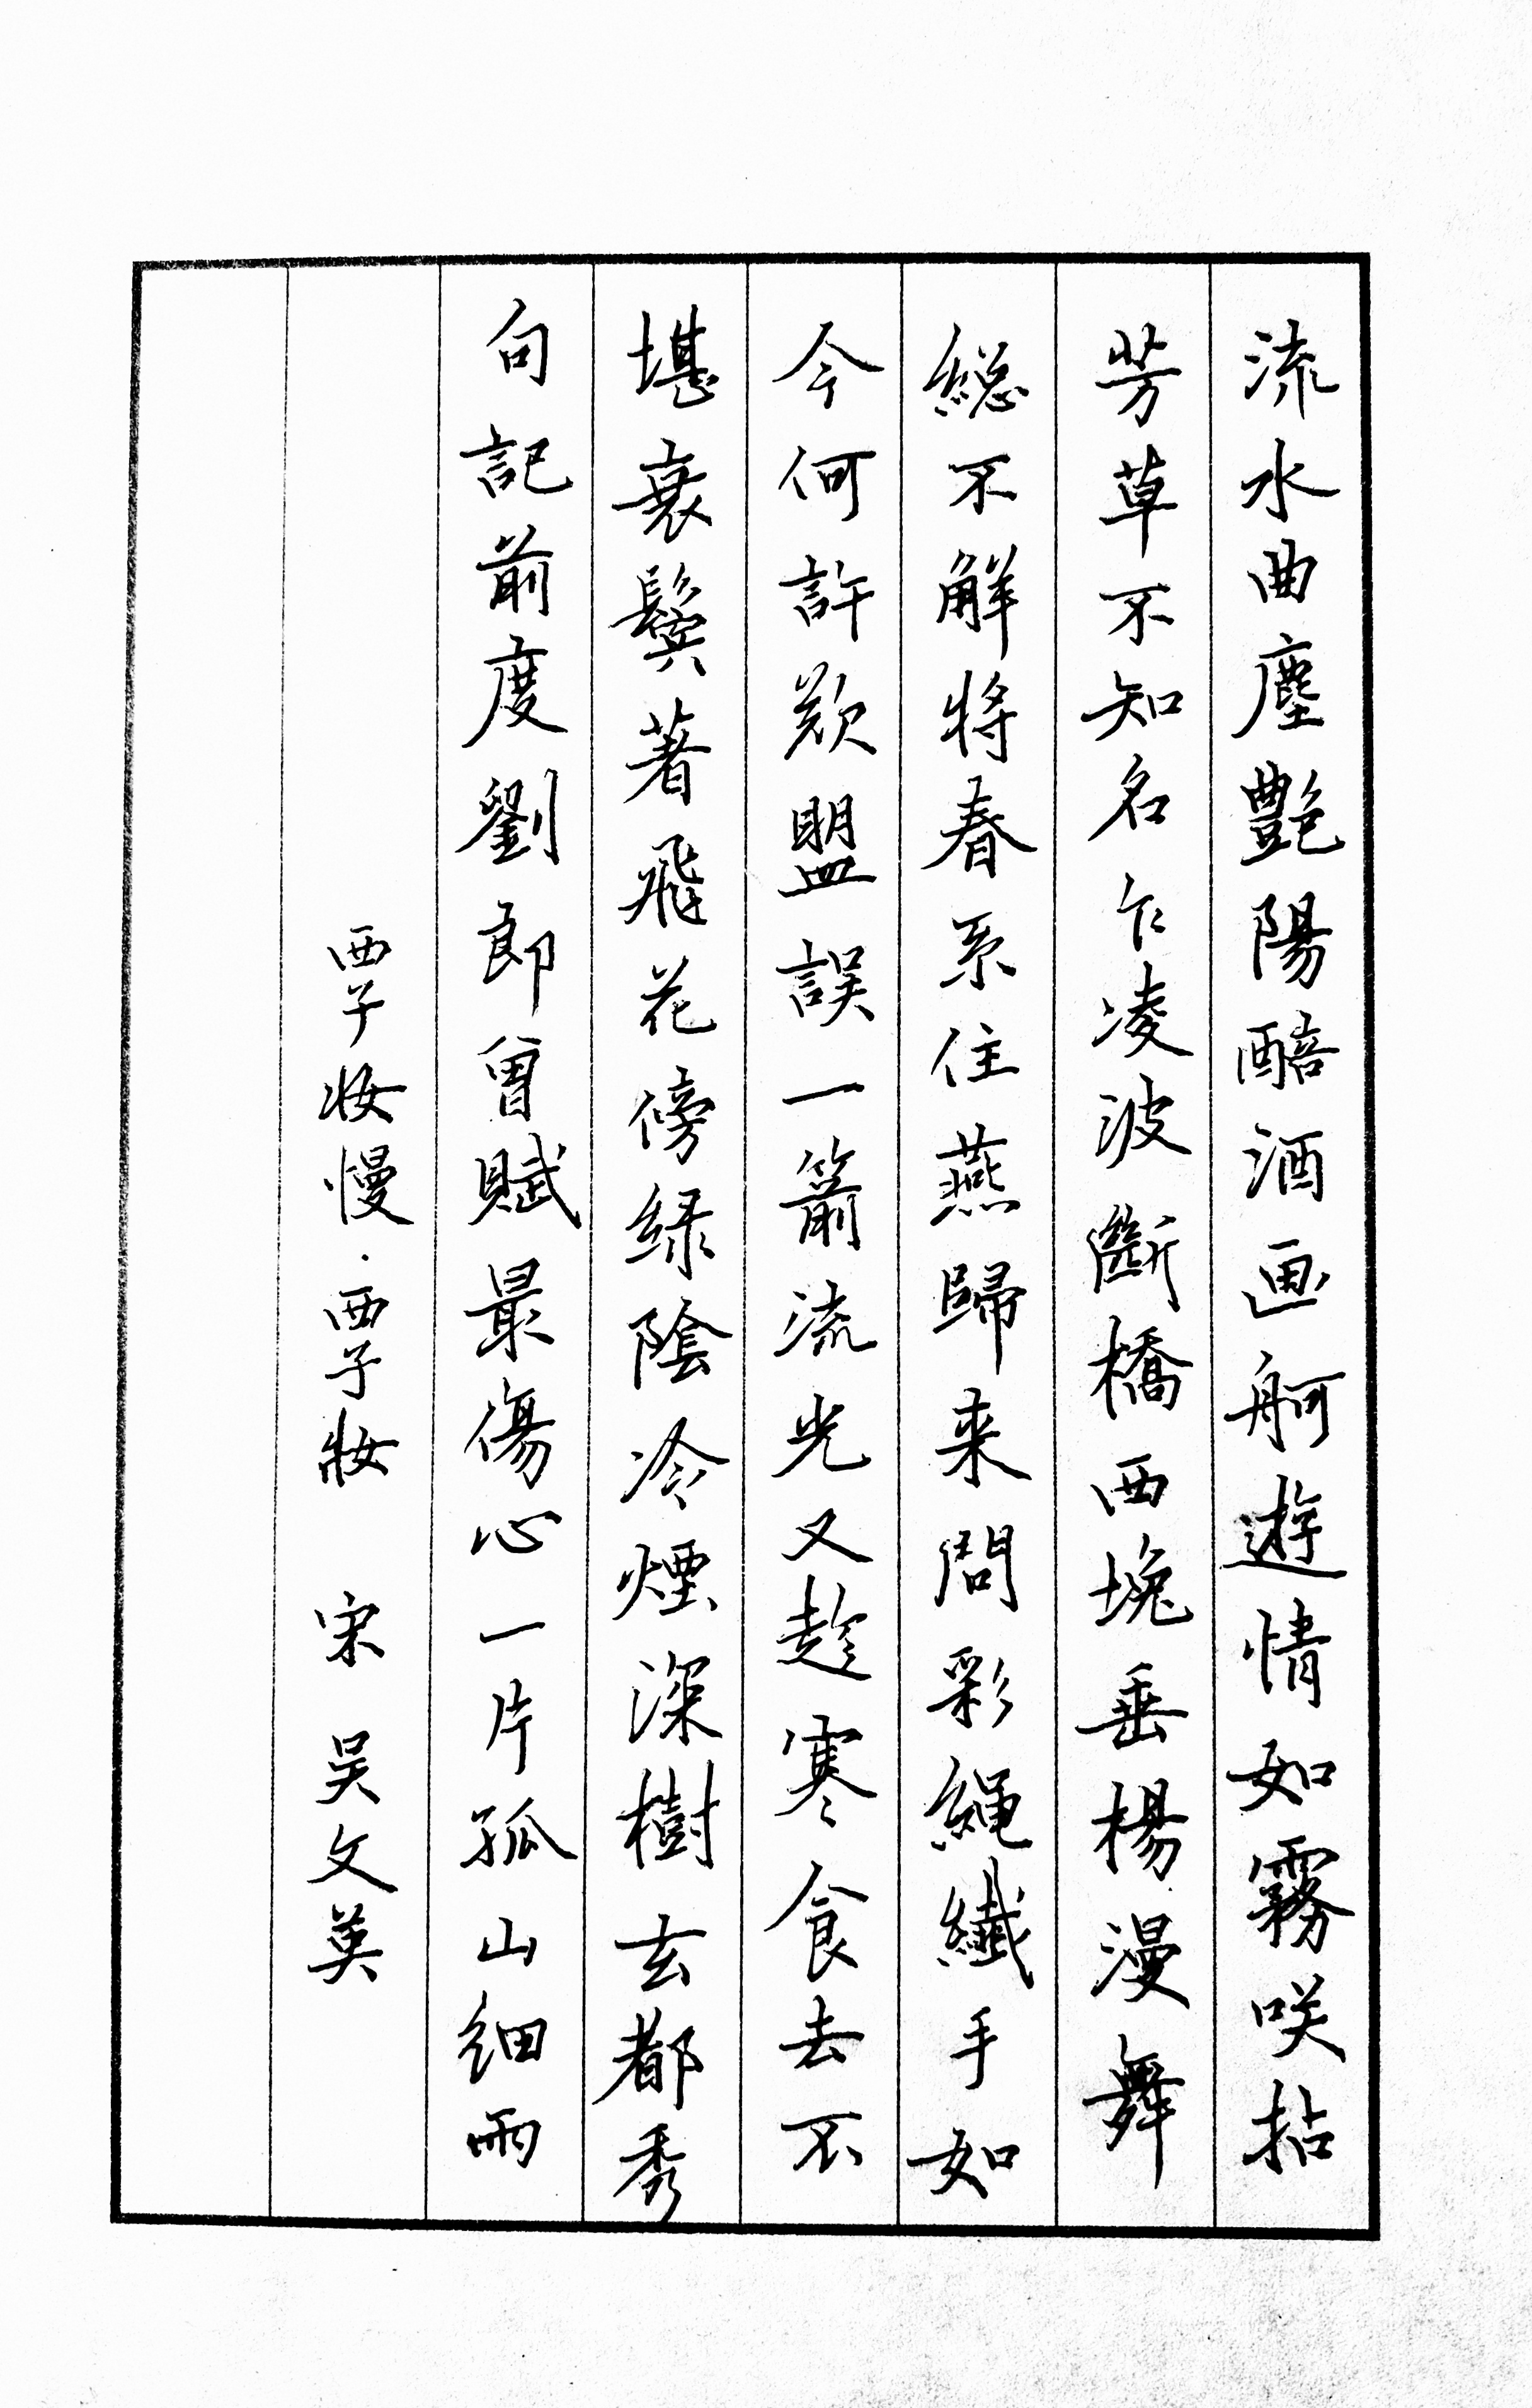 流水曲塵艷陽醅酒画舸遊情如霧咲拈
芳草不知名乍凌波斷橋西堍垂楊漫舞
総不解將春系住燕歸来問彩繩纖手如
今何許欵盟誤一箭流光又趂寒食去不
堪衰鬢著飛花傍緑陰冷煙深樹玄都秀
句記前度劉郎曾賦最傷心一片孤山细雨
西子妆慢·西子妝 宋 吴文英